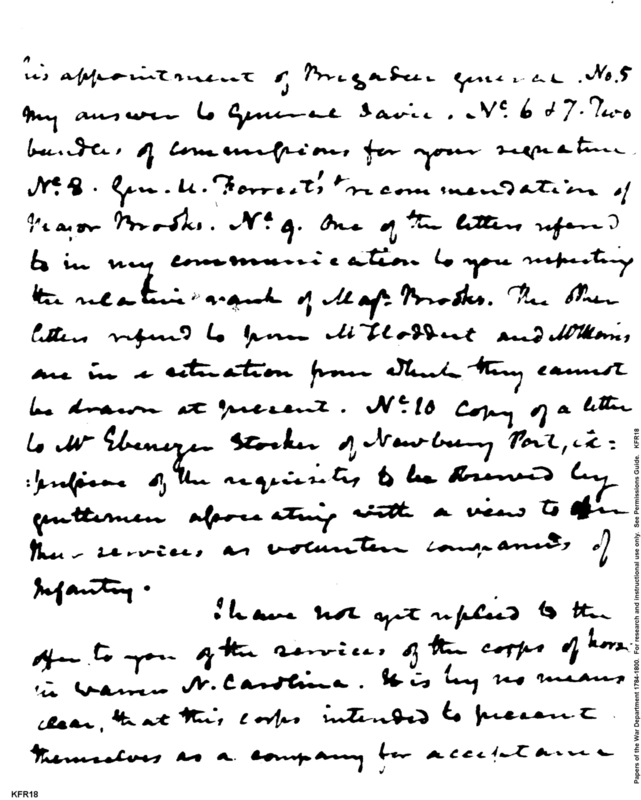 his appointment of Brigadier general. No. 5
My answer to General Davie. No. 6 & 7. Two
bundles of commissions for your signature
No. 8. Gen. U. Forrest's recommendation of
Major Brooks. No. 9. One of the letters refered
to in my communication to you respecting
the relative rank of Majr. Brooks. The other
letters refered to from Mr Stoddert and Mr Morris
are in a situation from which they cannot
be drawn at present. No. 10 Copy of a letter
to Mr Ebenezer Stocker of Newbury Port, ex=
=pressive of the requisites to be observed by
gentlemen associating with a view to offer
their services as volunteer companies of
Infantry.
I have not yet replied to the
offer to you of the services of the corps of horse
in Warren N. Carolina. It is by no means
clear, that this corps intended to present
themselves as a company for acceptance
KFR18
Papers of the War Department 1784-1800. For research and instructional use only. See Permissions Guide. KFR18